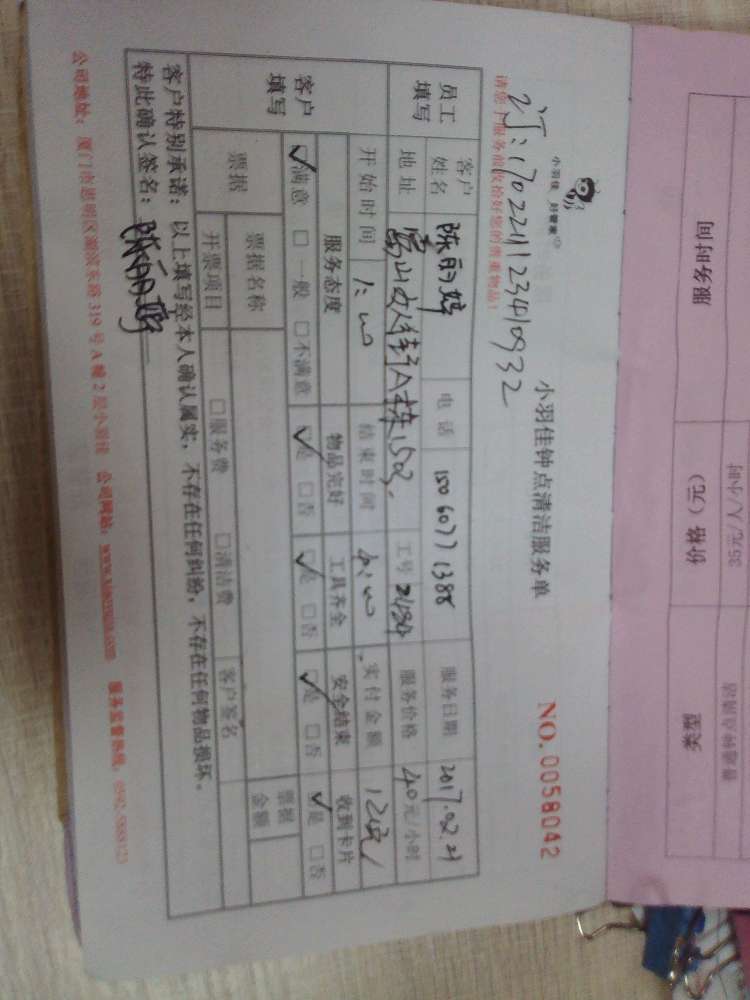 小羽佳 好管家
小羽佳钟点清洁服务单
NO. 0058042
请您于服务前收拾好您的贵重物品!
1702241123410932
员工填写
客户姓名 陈丽婷 电话 150 6077 1388 服务日期 2017.02.27
地址 A栋1503 工号 服务价格 40元/小时
开始时间 1:00 结束时间 4:00 实付金额 120元
客户填写
服务态度 物品完好 工具齐全 安全结束 收到卡片
满意 □一般 □不满意 □是 □否 □是 □否 □是 □否 是 □否
票据 票据名称 票据金额
开票项目 □服务费 □清洁费 客户签名
客户特别承诺:以上填写经本人确认属实,不存在任何纠纷,不存在任何物品损坏。
特此确认签名:陈丽婷
公司地址:厦门市思明区湖滨东路319号A幢2层小羽佳 公司网站: 服务监督热线:
类型 价格(元) 服务时间
普通钟点清洁 35元/人/小时